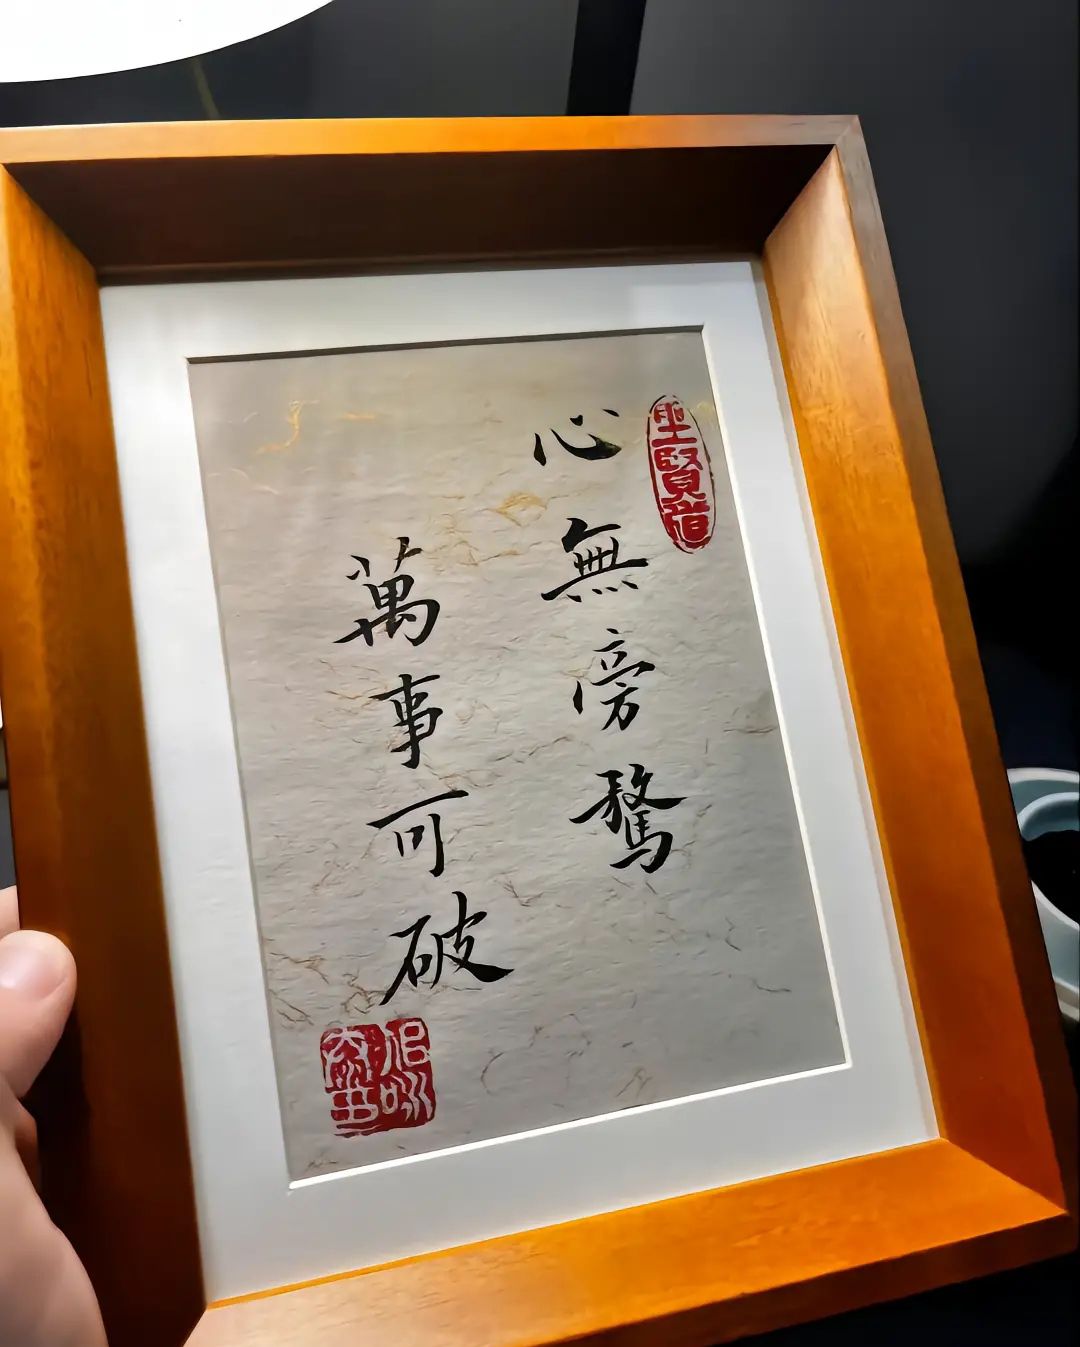 心無旁騖
萬事可破
聖賢道